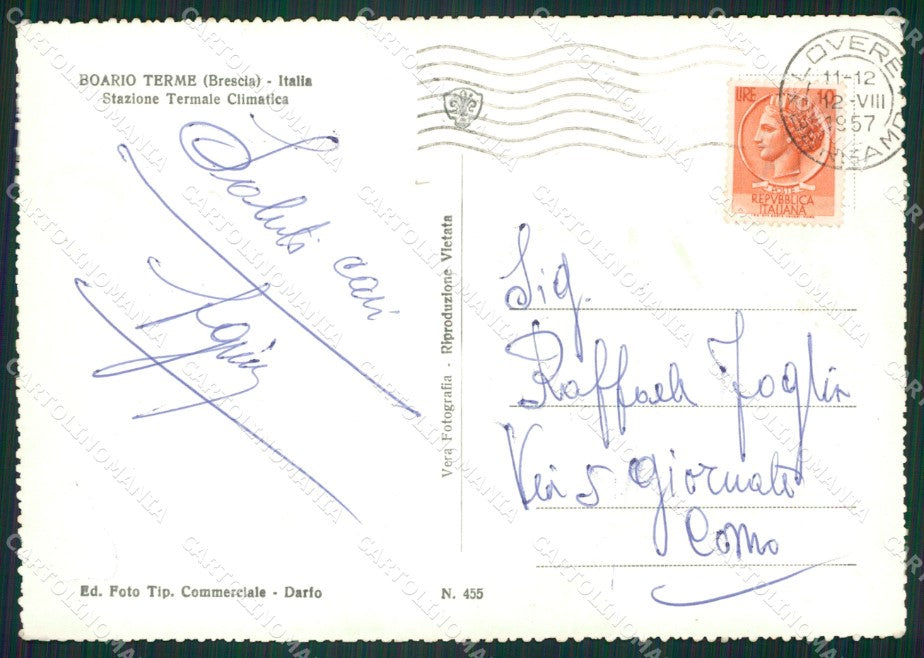 BOARIO TERME (Brescia) - Italia
Stazione Termale Climatica
Saluti cari
Vera Fotografia - Riproduzione Vietata
Ed. Foto Tip. Commerciale - Darfo
N. 455
LOVERE
11-12
12-VIII
1957
LIRE 10
POSTE
REPVBBLICA
ITALIANA
Sig.
Raffaele Foglia
Via 5 Giornate
Como
CARTOLINOMANIA